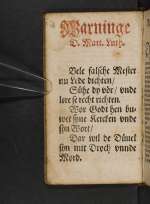 Warninge
D. Mart. Luth.
Vele falsche Mester
nu Lede dichten/
Sühe dy vör/ vnde
lere se recht richten.
Wor Godt hen bu-
wet sine Kercken vnde
syn Wort/
Dar wil de Düuel
syn mit Droch vnnde
Mord.